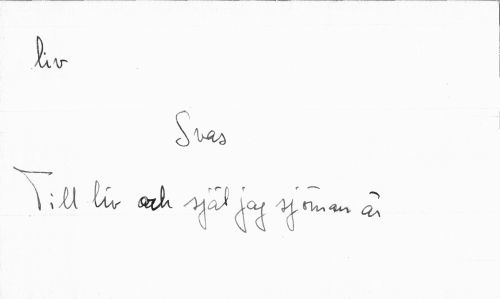 liv
Svas
Till liv och själ jag sjöman är